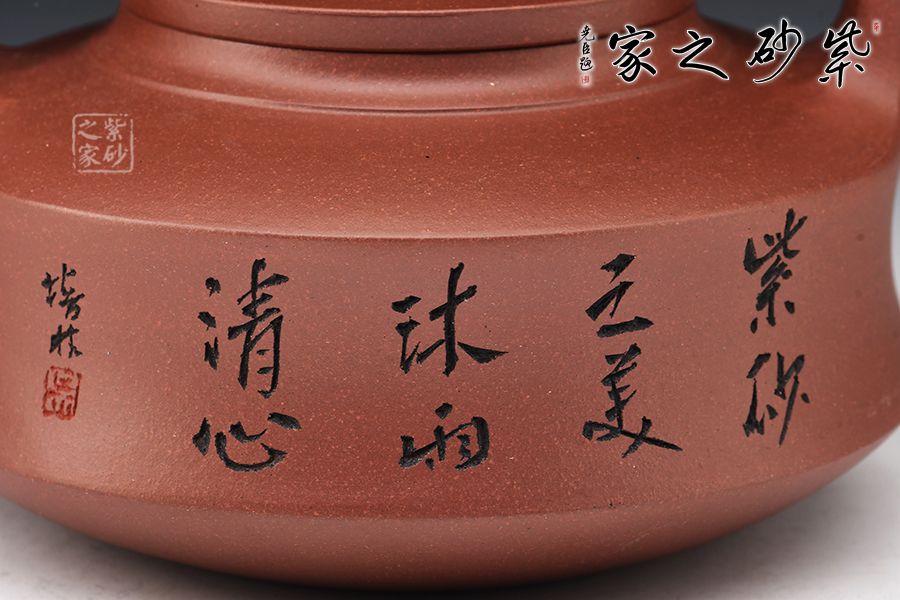 紫砂之家
尧臣題
紫砂
之家
紫砂
之美
沐雨
清心